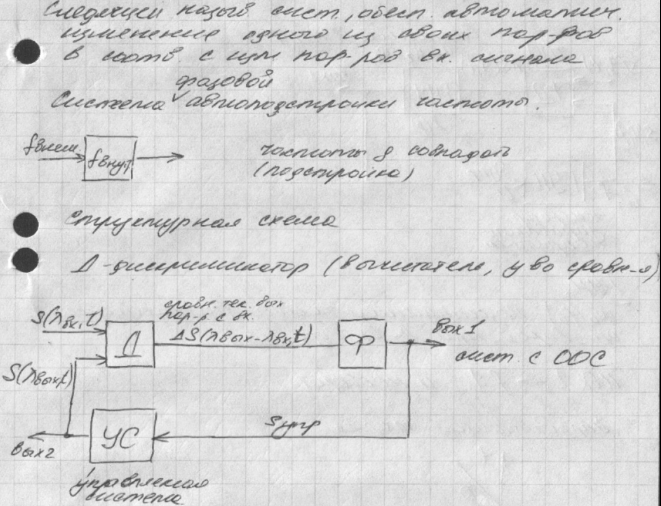 Следящей назыв сист., обесп. автоматич.
изменение одного из своих пар-ров
в соотв. с изм пар-ров вх. сигнала
фазовой
Система автоподстройки частоты.
fвнеш.
fвнут
частоты д совпадать
(подстройка)
Структурная схема
Д-дискриминатор (вычитатель, у-во сравн-я)
сравн. тек. вых
пар-р с вх.
S(λвх,t)
Д
ΔS(λвых-λвх,t)
Ф
вых 1
сист. с ООС
S(λвых,t)
УС
Sупр
вых2
управляемая
система